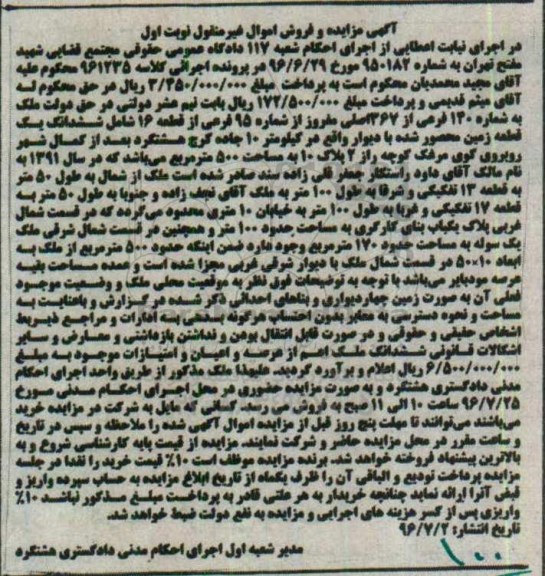 آگهی مزایده و فروش اموال غیرمنقول نوبت اول
در اجرای نیابت اعطایی از اجرای احکام شعبه ۱۱۷ دادگاه عمومی حقوقی مجتمع قضایی شهید
مفتح تهران به شماره ۹۵۰۱۸۲ مورخ ۹۶/۶/۲۹ در پرونده اجرائی کلاسه ۹۶۱۲۳۵ محکوم علیه
آقای مجید محمدیان محکوم است به پرداخت مبلغ ۳/۴۵۰/۰۰۰/۰۰۰ ریال در حق محکوم له
آقای میثم قدیمی و پرداخت مبلغ ۱۷۲/۵۰۰/۰۰۰ ریال بابت نیم عشر دولتی در حق دولت ملک
به شماره ۱۴۰ فرعی از ۳۶۷اصلی مفروز از شماره ۹۵ فرعی از قطعه ۱۶ شامل ششدانگ یک
قطعه زمین محصور شده با دیوار واقع در کیلومتر ۱۰ جاده کرج هشتگرد بعد از کمال شهر
روبروی کوی مرغک کوچه راز ۲ پلاک ۱۰ به مساحت ۵۰۰۰ مترمربع می‌باشد که در سال ۱۳۹۱ به
نام مالک آقای داود راستکار جعفر قلی زاده سند صادر شده است ملک از شمال به طول ۵۰ متر
به قطعه ۱۳ تفکیکی و شرقا به طول ۱۰۰ متر به ملک آقای نجف زاده و جنوبا به طول ۵۰ متر به
قطعه ۱۷ تفکیکی و غربا به طول ۱۰۰ متر به خیابان ۱۰ متری محدود می‌گردد که در قسمت شمال
غربی پلاک یکباب بنای کارگری به مساحت حدود ۱۰۰ متر و همچنین در قسمت شمال شرقی ملک
یک سوله به مساحت حدود ۱۷۰ مترمربع وجود دارد ضمن اینکه حدود ۵۰۰ مترمربع از ملک به
ابعاد ۱۰×۵۰ در قسمت شمال ملک با دیوار شرقی غربی مجزا شده است و عمده مساحت بقیه
عرصه می‌باشد با توجه به توضیحات فوق نظر به موقعیت محلی ملک و وضعیت موجود
فعلی آن به صورت زمین چهاردیواری و بناهای احداثی ذکر شده در گزارش و باعنایت به
مساحت و نحوه دسترسی به معابر بدون احتساب هرگونه بدهی به ادارات و مراجع ذیربط
اشخاص حقیقی و حقوقی و در صورت قابل انتقال بودن و نداشتن بازداشتی و معارض و سایر
اشکالات قانونی ششدانگ ملک اعم از عرصه و اعیان و امتیازات موجود به مبلغ
۶/۵۰۰/۰۰۰/۰۰۰ ریال اعلام و برآورد گردید. علیهذا ملک مذکور از طریق واحد اجرای احکام
مدنی دادگستری هشتگرد و به صورت مزایده حضوری در محل اجرای احکام مدنی مورخ
۹۶/۷/۲۵ ساعت ۱۰ الی ۱۱ صبح به فروش می رسد. کسانی که مایل به شرکت در مزایده خرید
می‌باشند می‌توانند تا مهلت پنج روز قبل از مزایده اموال آگهی شده را ملاحظه و سپس در تاریخ
و ساعت مقرر در محل مزایده حاضر و شرکت نمایند. مزایده از قیمت پایه کارشناسی شروع و به
بالاترین پیشنهاد فروخته خواهد شد. برنده مزایده موظف است ۱۰٪ قیمت خرید را نقدا در جلسه
مزایده پرداخت تودیع و الباقی آن را ظرف یکماه از تاریخ ابلاغ مزایده به حساب سپرده واریز و
فیش آنرا ارائه نماید چنانچه خریدار به هر علتی قادر به پرداخت مبلغ مذکور نباشد ۱۰٪
واریزی پس از کسر هزینه های اجرایی و مزایده به نفع دولت ضبط خواهد شد.
تاریخ انتشار: ۹۶/۷/۲
مدیر شعبه اول اجرای احکام مدنی دادگستری هشتگرد
۱۰۰